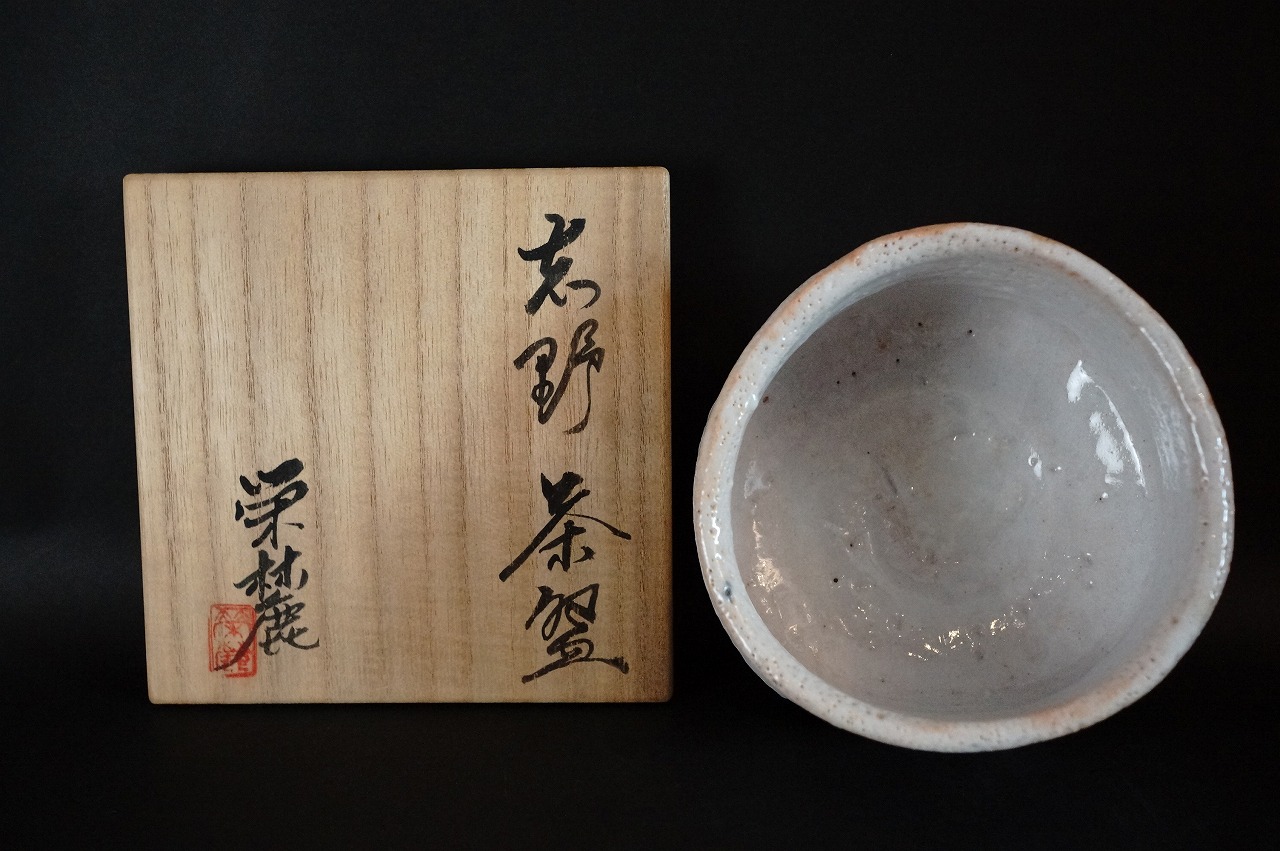 志野 茶盌
栄麓